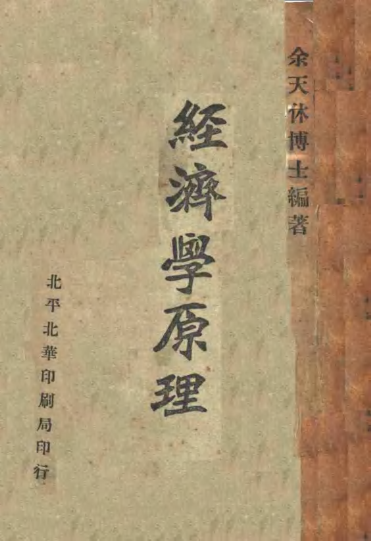 余天休博士編著
經濟學原理
北平北華印刷局印行